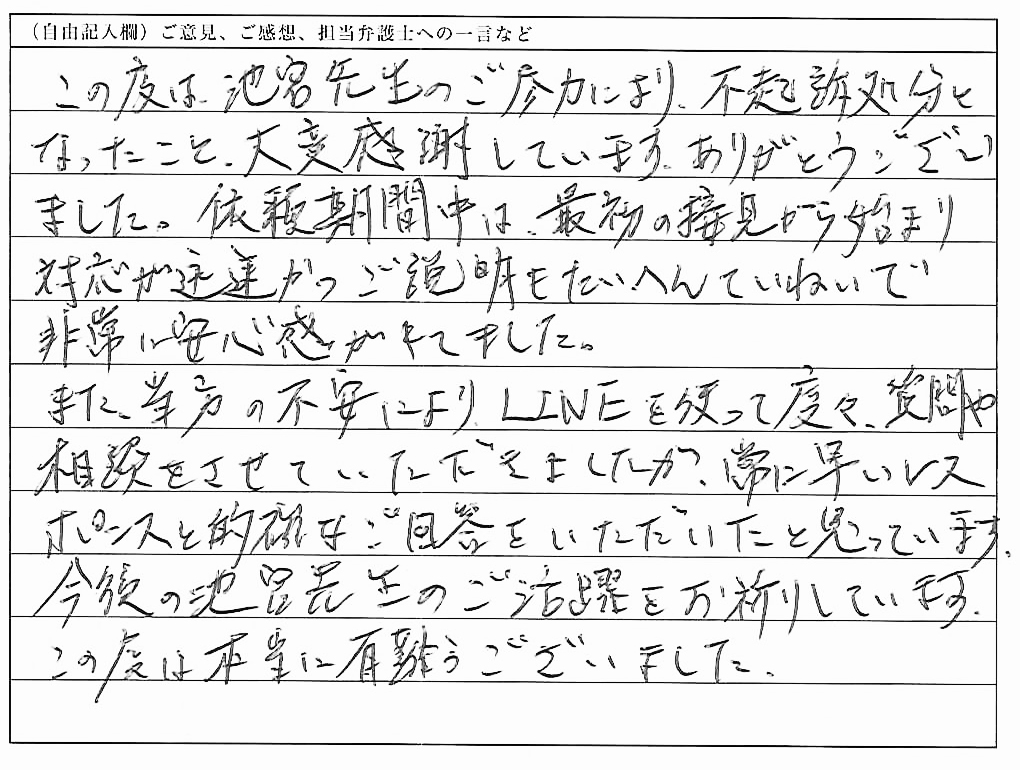 （自由記入欄）ご意見、ご感想、担当弁護士への一言など
この度は、池宮先生のご尽力により、不起訴処分と
なったこと、大変感謝しています。ありがとうござい
ました。依頼期間中は、最初の接見から始まり
対応が迅速かつご説明もたいへんていねいで
非常に安心感がもてました。
また、当方の不安により、LINEを使って度々、質問や
相談をさせていただきましたが、常に早いレス
ポンスと的確なご回答をいただいたと思っています。
今後の池宮先生のご活躍をお祈りしています。
この度は本当に有難うございました。